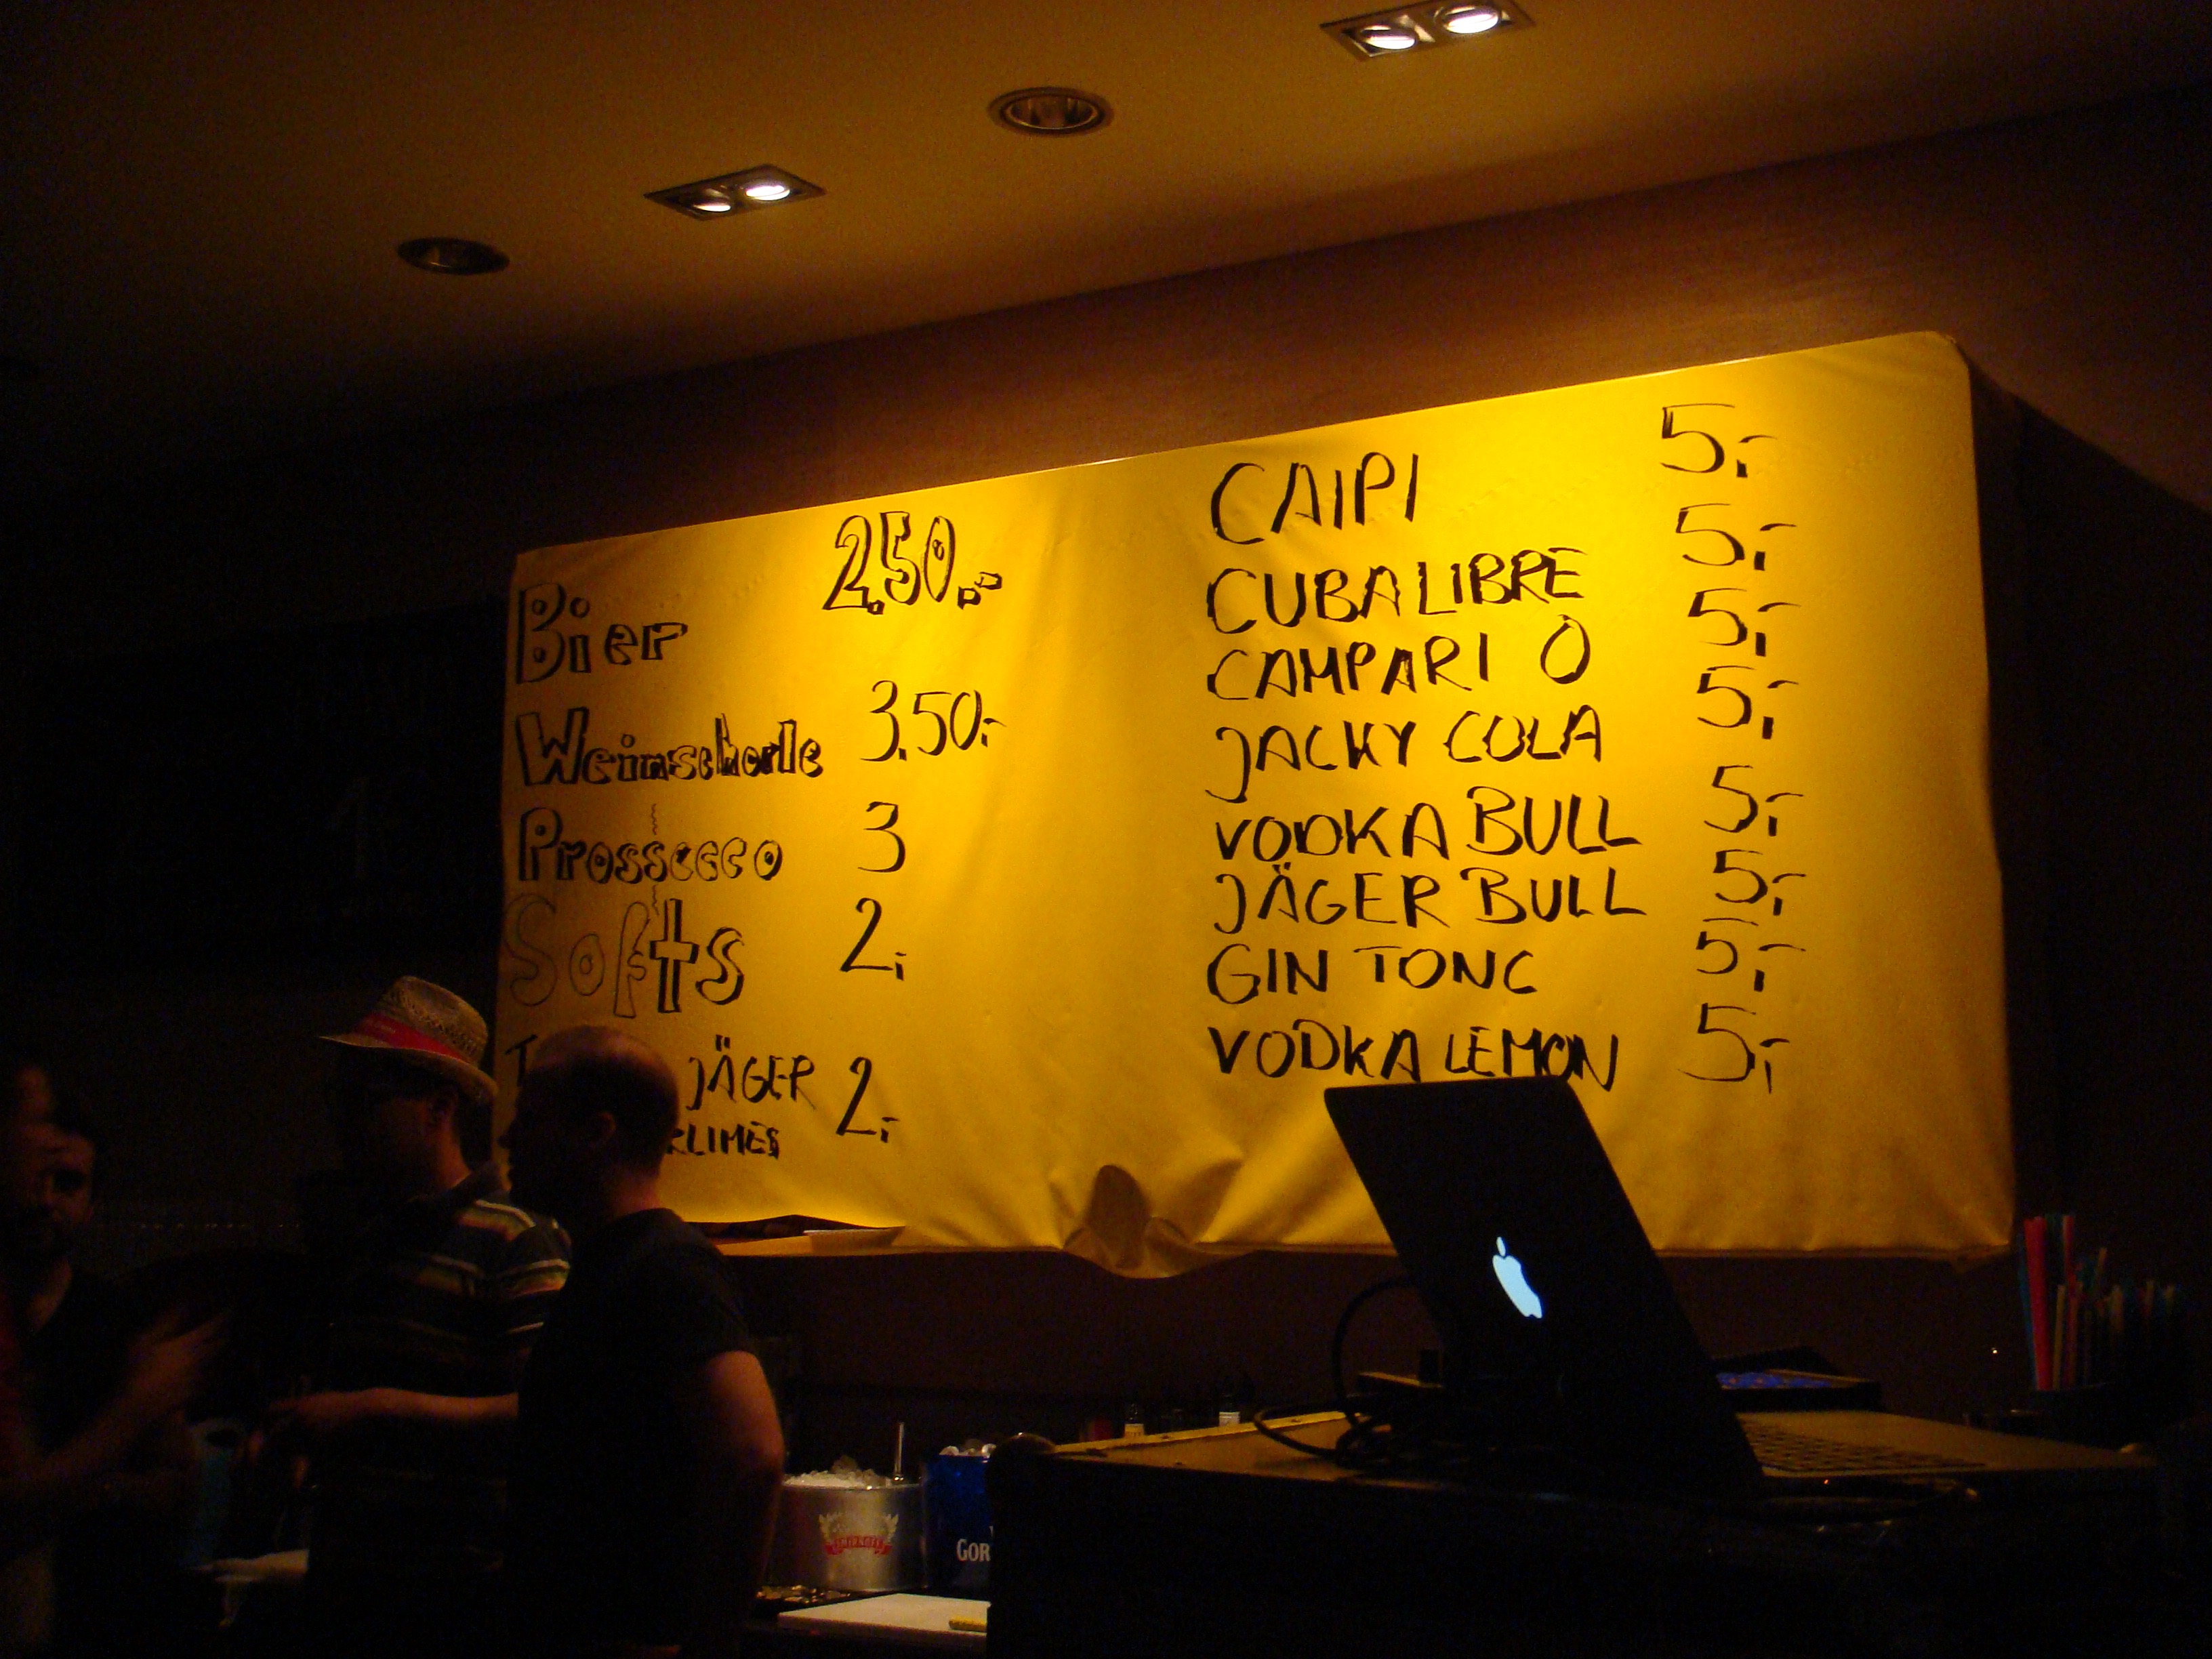 Bier 2.50.-
Weinschorle 3.50.-
Prossecco 3
Softs 2.-
JÄGER 2.-
CAIPI 5,-
CUBA LIBRE 5,-
CAMPARI O 5,-
JACKY COLA 5,-
VODKA BULL 5,-
JÄGER BULL 5,-
GIN TONC 5,-
VODKA LEMON 5,-
SMIRNOFF